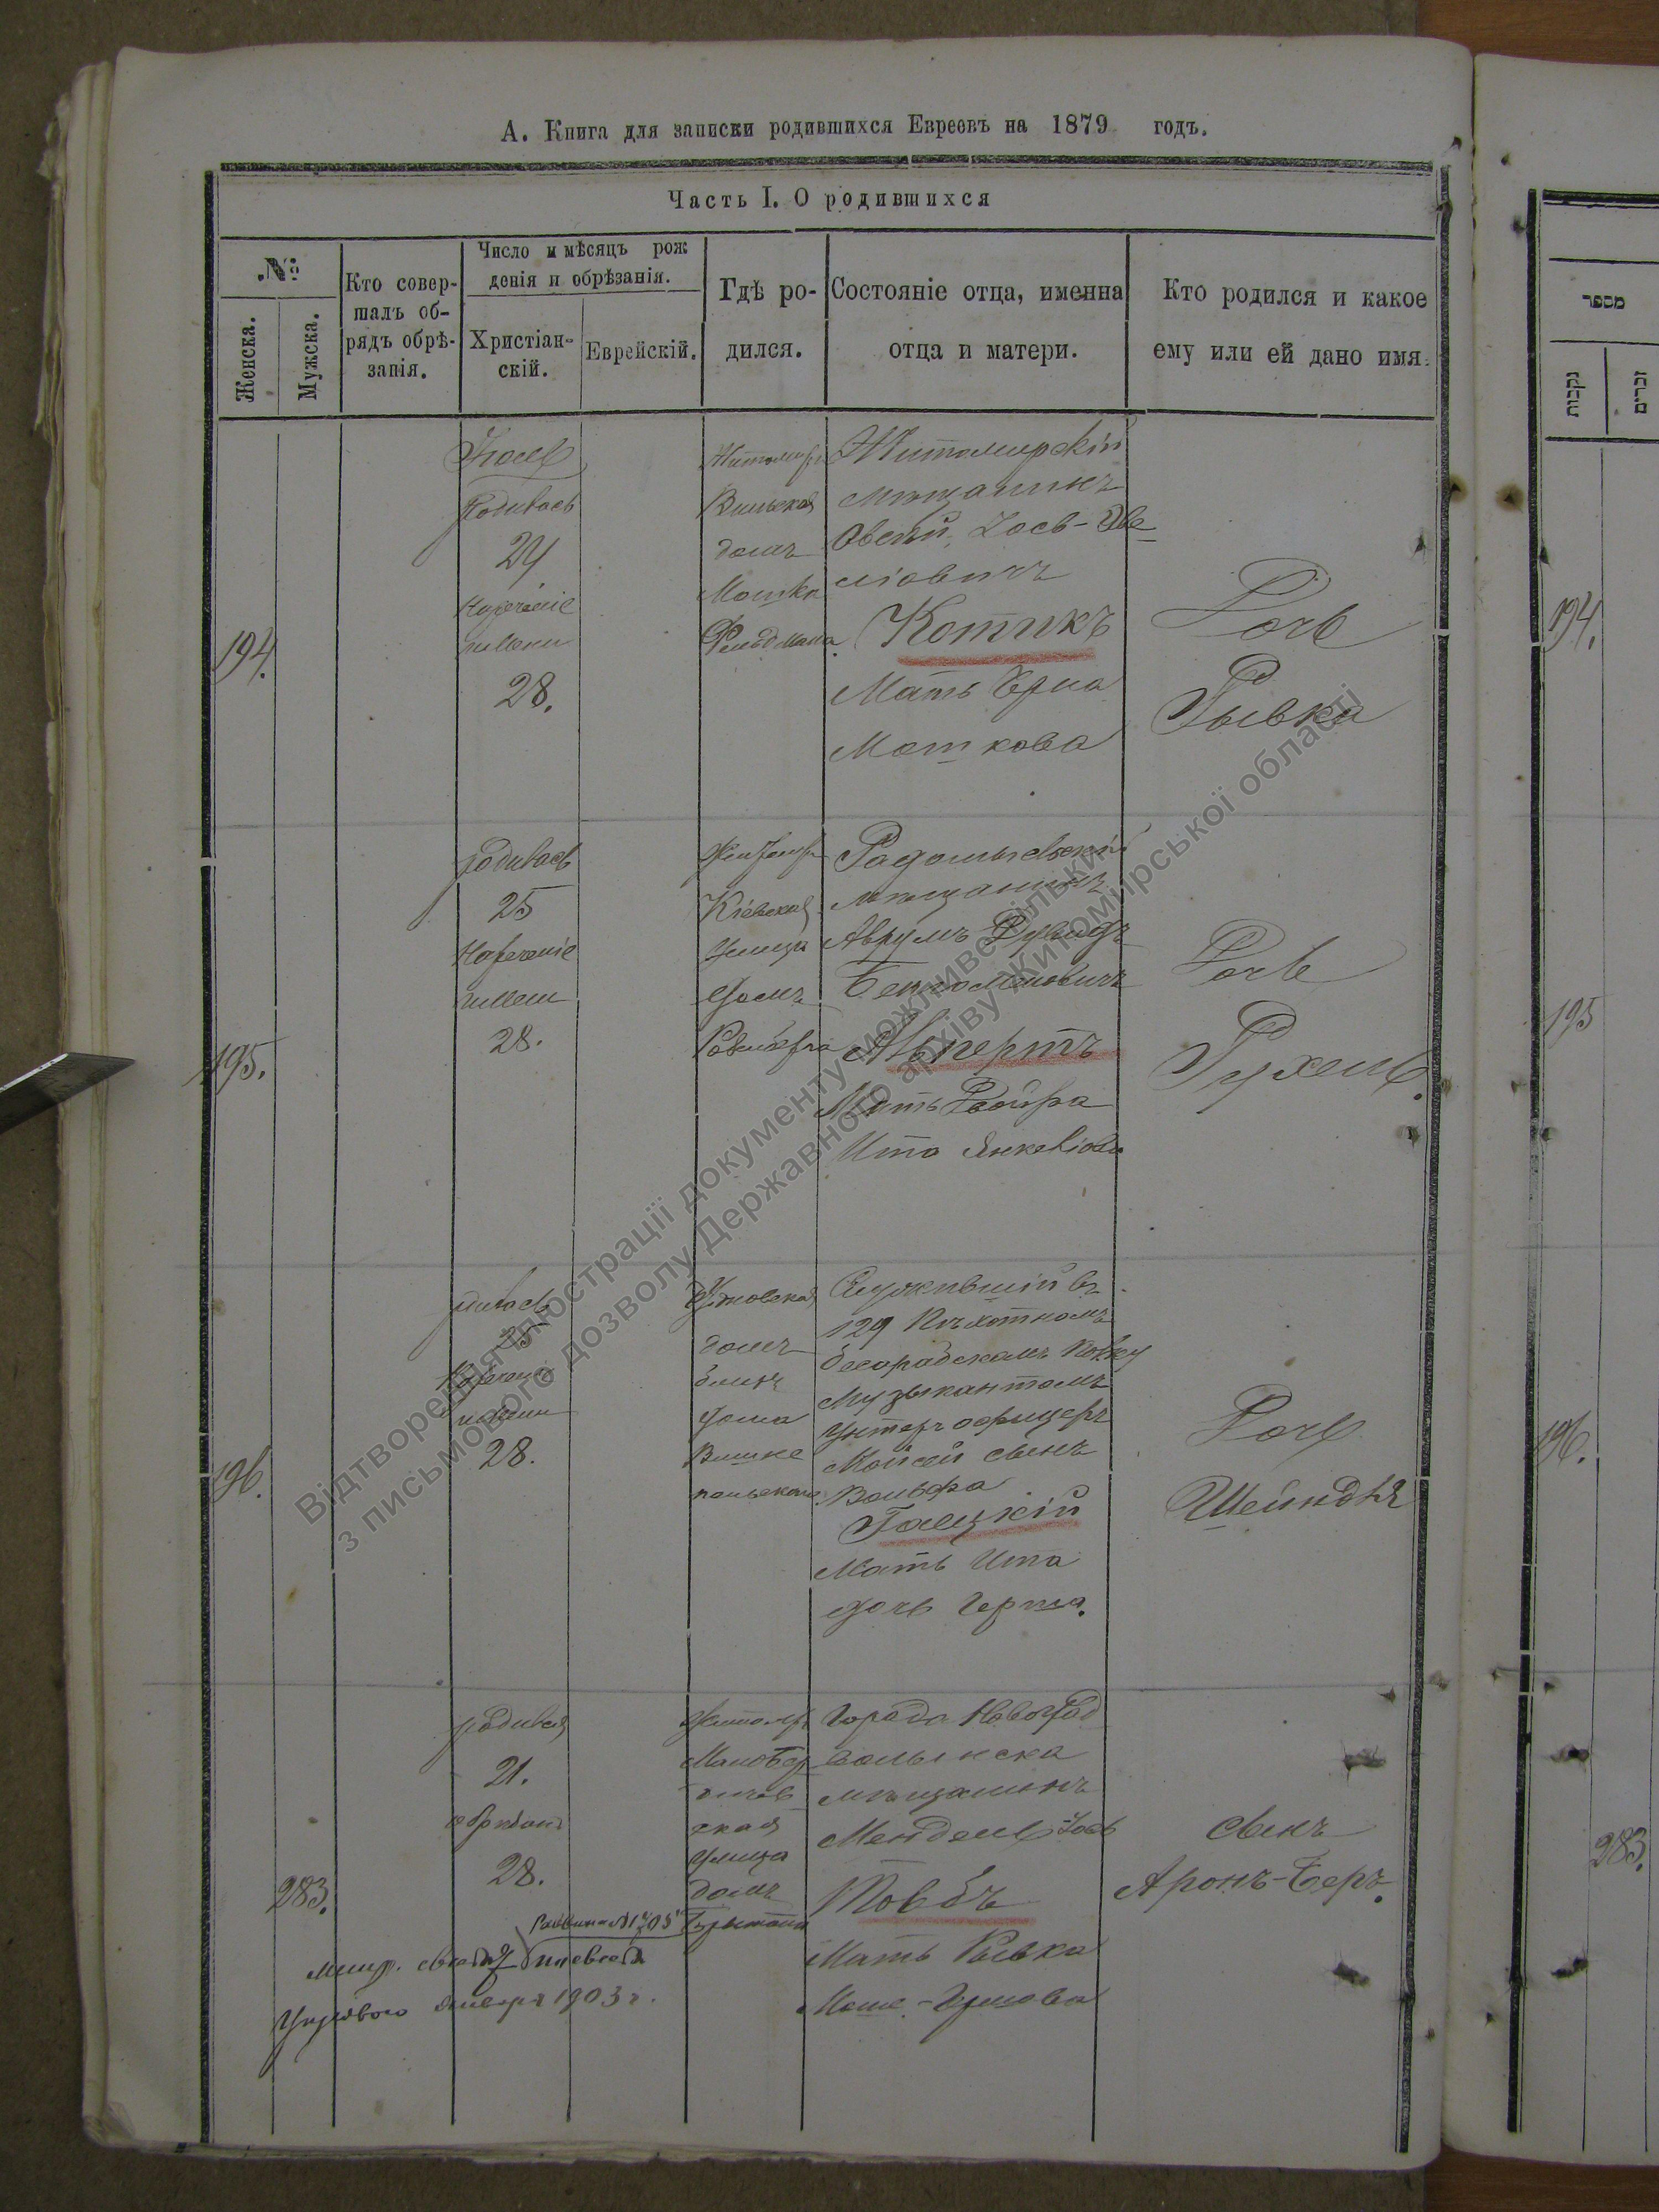 А. Книга для записки родившихся Евреевъ на 1879 годъ.
Часть I. О родившихся
№
Женска.
Мужска.
Кто совер-
шалъ об-
рядъ обрѣ-
занія.
Число и мѣсяцъ рож
денія и обрѣзанія.
Христіан-
скій.
Еврейскій.
Гдѣ ро-
дился.
Состояніе отца, именна
отца и матери.
Кто родился и какое
ему или ей дано имя.
194.
Родилась
24
Нареченіе
имени
28.
Житомиръ
Вильская
домъ
Мошка
Фельдмана.
Житомирскій
мѣщанинъ
Овсѣй, Іось-
Котикъ
Мать Черна
Мошкова
Дочь
Рывка
195.
родилась
25
Нареченіе
имени
28.
Житомиръ
Кіевская
улица
домъ
Радомысльскій
мѣщанинъ
Аврумъ
Альпертъ
Мать Двойра
Ита Янкеліова
Дочь
Рухель.
196.
родилась
25
Нареченіе
имени
28.
Чудновская
домъ
близъ
дома
Служившій въ
129 Пѣхотномъ
Бесарабскомъ Полку
Музыкантомъ
Унтеръ офицеръ
Мойсей сынъ
Вольфа
Галецкій
Мать Ита
дочь Герша.
Дочь
Шейндля
283.
родился
21.
обрѣзанъ
28.
Житомиръ
Малобер
дичев
ская
улица
домъ
Города Новоград
волынска
мѣщанинъ
Мендель Іось
Товбъ
Мать Рывка
Моше-Гершова
сынъ
Аронъ-Беръ.
января 1903 г.
מספר
נקבות
זכרים
194.
195
196.
283.
Відтворення ілюстрації документу можливе тільки
з письмового дозволу Державного архіву Житомирської області